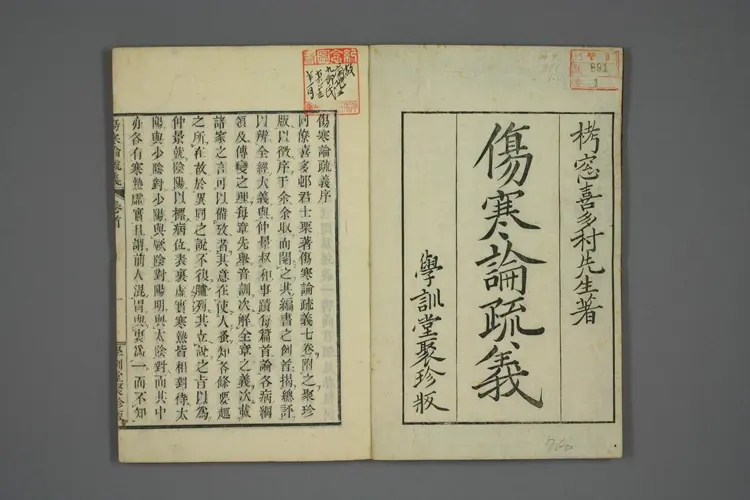 栲窓喜多村先生著
傷寒論疏義
學訓堂聚珍版
891
1
傷寒論疏義序
同僚喜多邨君士栗著傷寒論疏義七卷附之聚珍
版以徵序于余余取而閱之其編書之例首揭總評
以辨全經大義與仲景叔和事蹟每篇首論各病綱
領及傳變之理每章先舉音訓次解全章之義次載
諸家之言可以備攷者其意在使人蚤知各條要趣
之所在故於異同之說不復臚列其立說之旨以為
仲景就陰陽以標病位表裏虛實寒熱皆相對待太
陽與少陰對少陽與厥陰對陽明與太陰對而其中
亦各有寒熱虛實且謂前人混胃與裏為一而不知